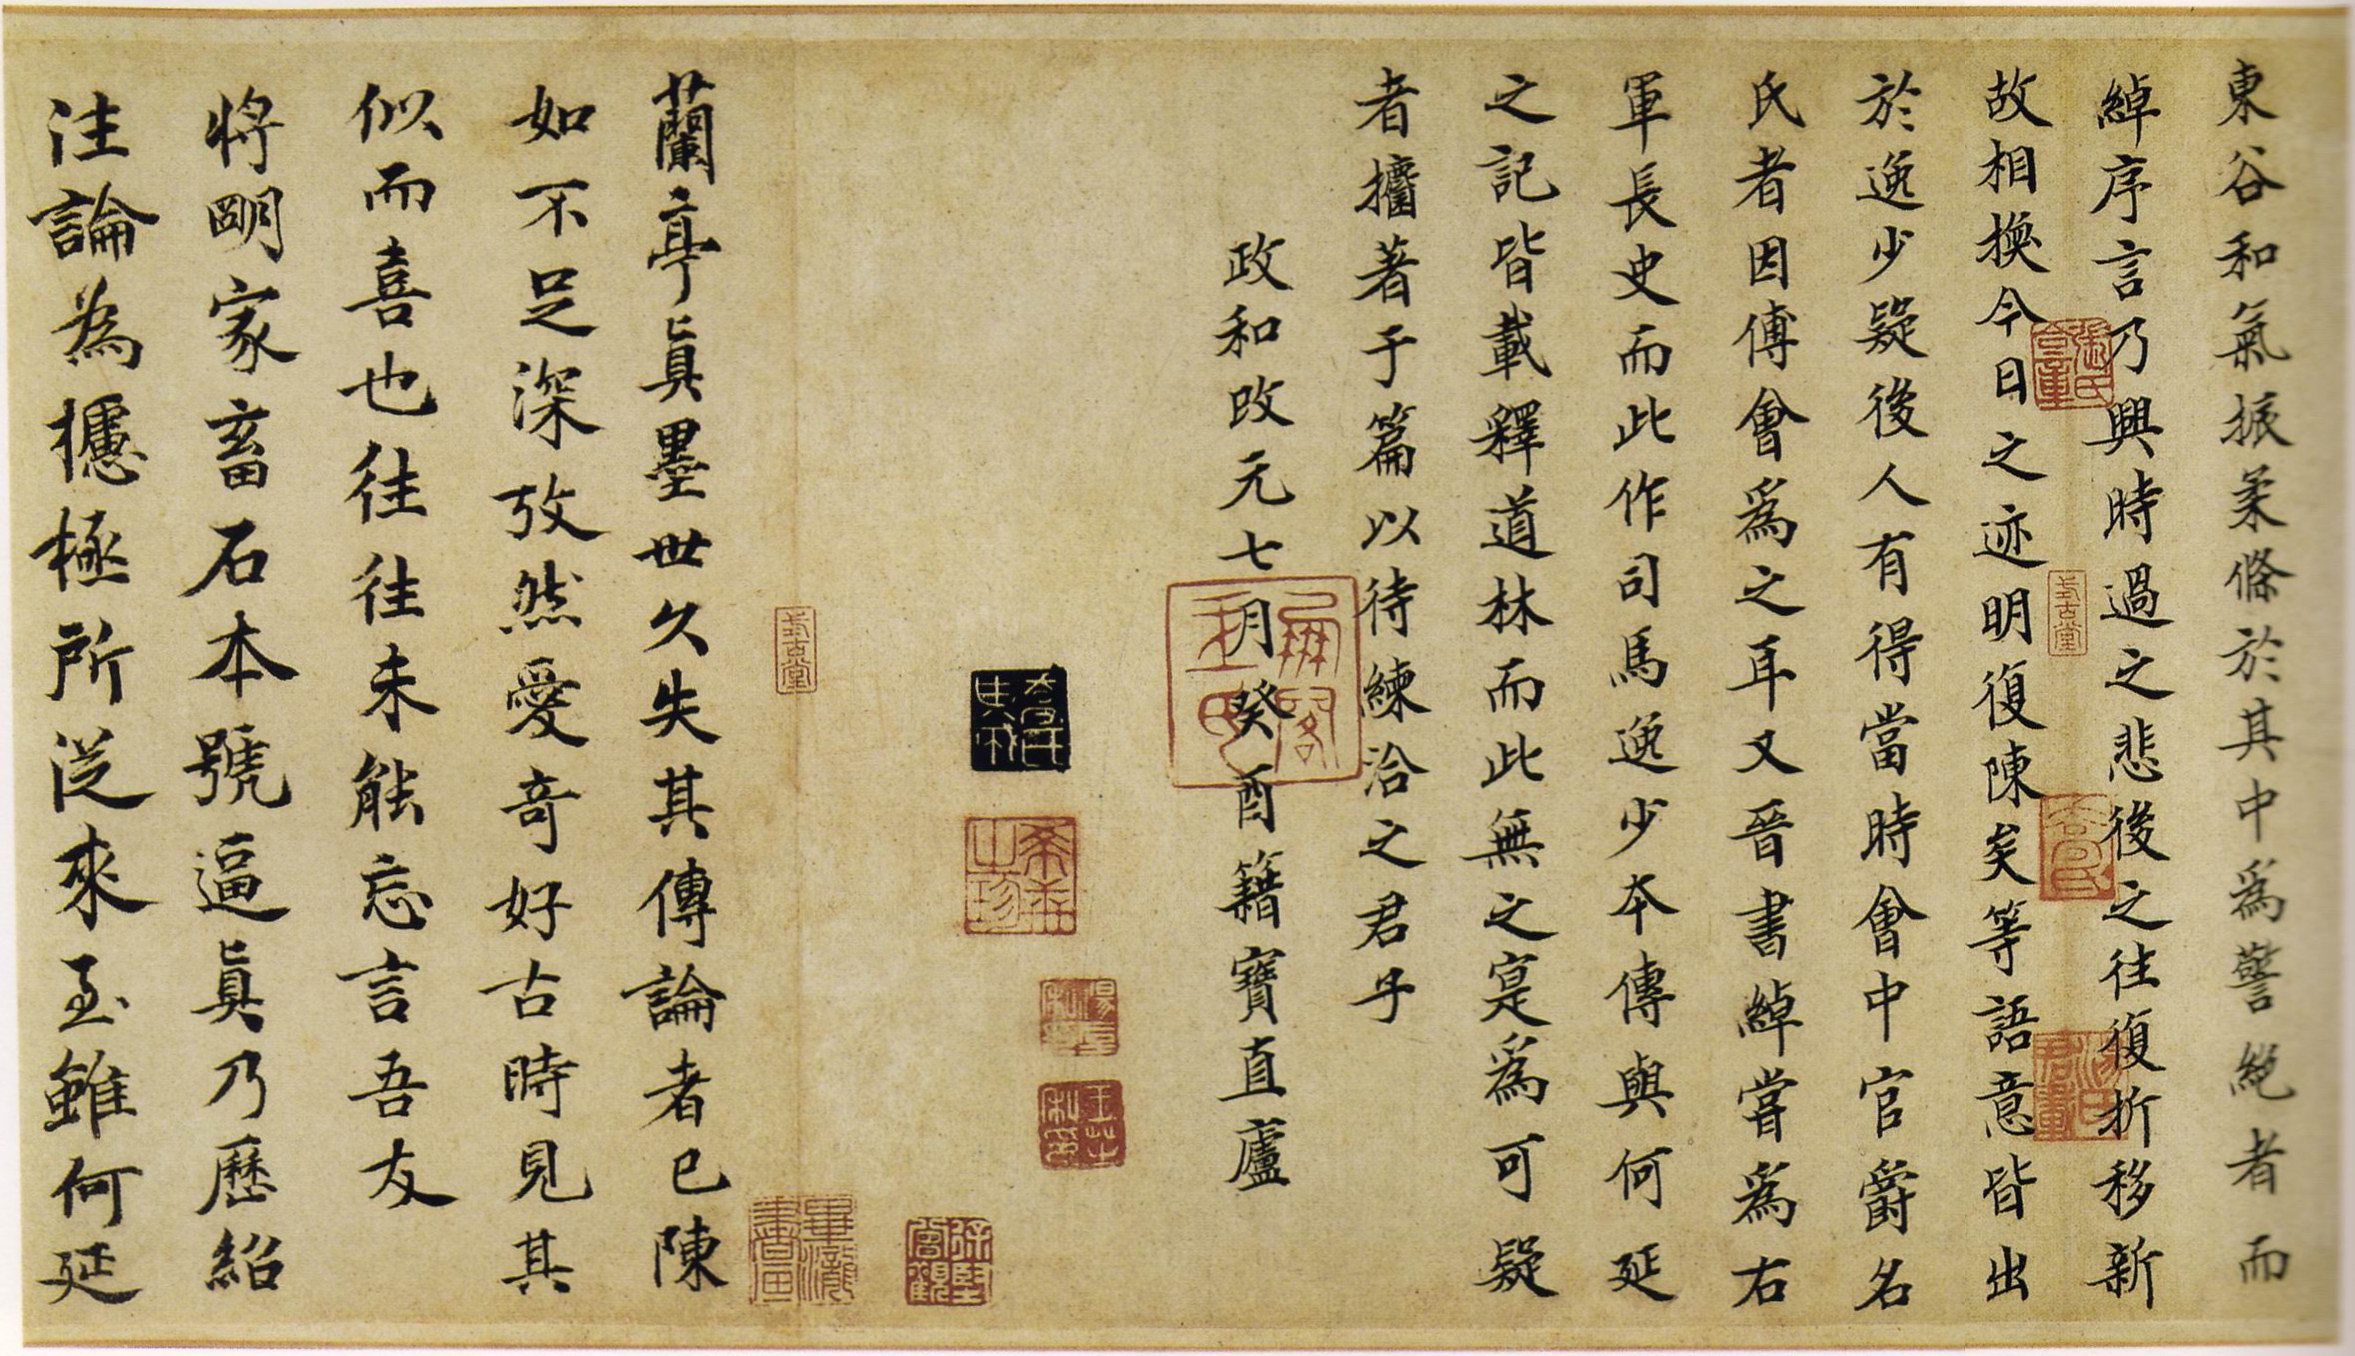 東谷和氣振柔條於其中爲警絕者而
綽序言乃興時過之悲後之往復折移新
故相換今日之迹明復陳矣等語意皆出
於逸少疑後人有得當時會中官爵名
氏者因傅會爲之耳又晉書綽嘗爲右
軍長史而此作司馬逸少本傳與何延
之記皆載釋道林而此無之寔爲可疑
者攟著于篇以待練洽之君子
政和改元七月癸酉籍寶直廬
蘭亭真墨世久失其傳論者已陳
如不足深攷然愛奇好古時見其
似而喜也往往未能忘言吾友
將明家畜石本號逼真乃歷紹
注論為攄極所從來至雖何延